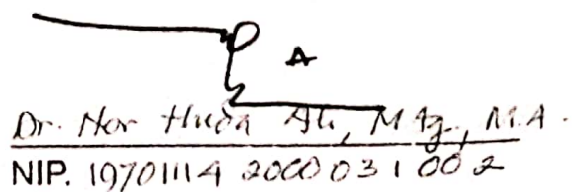 Dr. Nor Huda Ali, M.Ag., M.A.
NIP. 19701114 200003 1 002